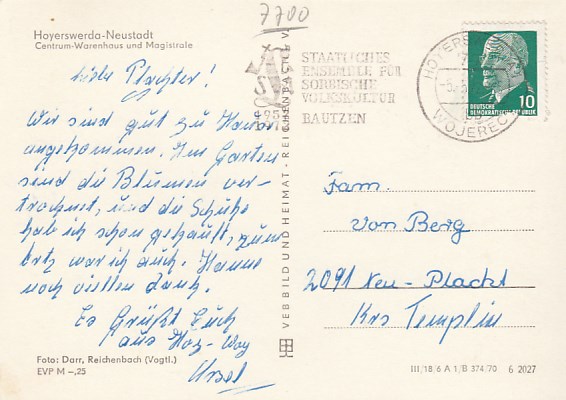 7700
Hoyerswerda-Neustadt
Centrum-Warenhaus und Magistrale
Liebe Plachter!
Wir sind gut zu Hause
angekommen. Im Garten
sind die Blumen ver-
trocknet, und die Schuhe
hab ich schon gekauft, zum
war ich auch. Hanne
noch vielen dank.
Es Grüßt Euch
aus Hoy-Woy
Ursel
Foto: Darr, Reichenbach (Vogtl.)
EVP M –,25
VEB BILD UND HEIMAT · REICHENBACH I. V.
STAATLICHES
ENSEMBLE FÜR
SORBISCHE
VOLKSKULTUR
BAUTZEN
DEUTSCHE
DEMOKRATISCHE REPUBLIK
10
Fam.
von Berg
2091 Neu-Placht
Krs Templin
III/18/6 A 1/B 374/70 6 2027